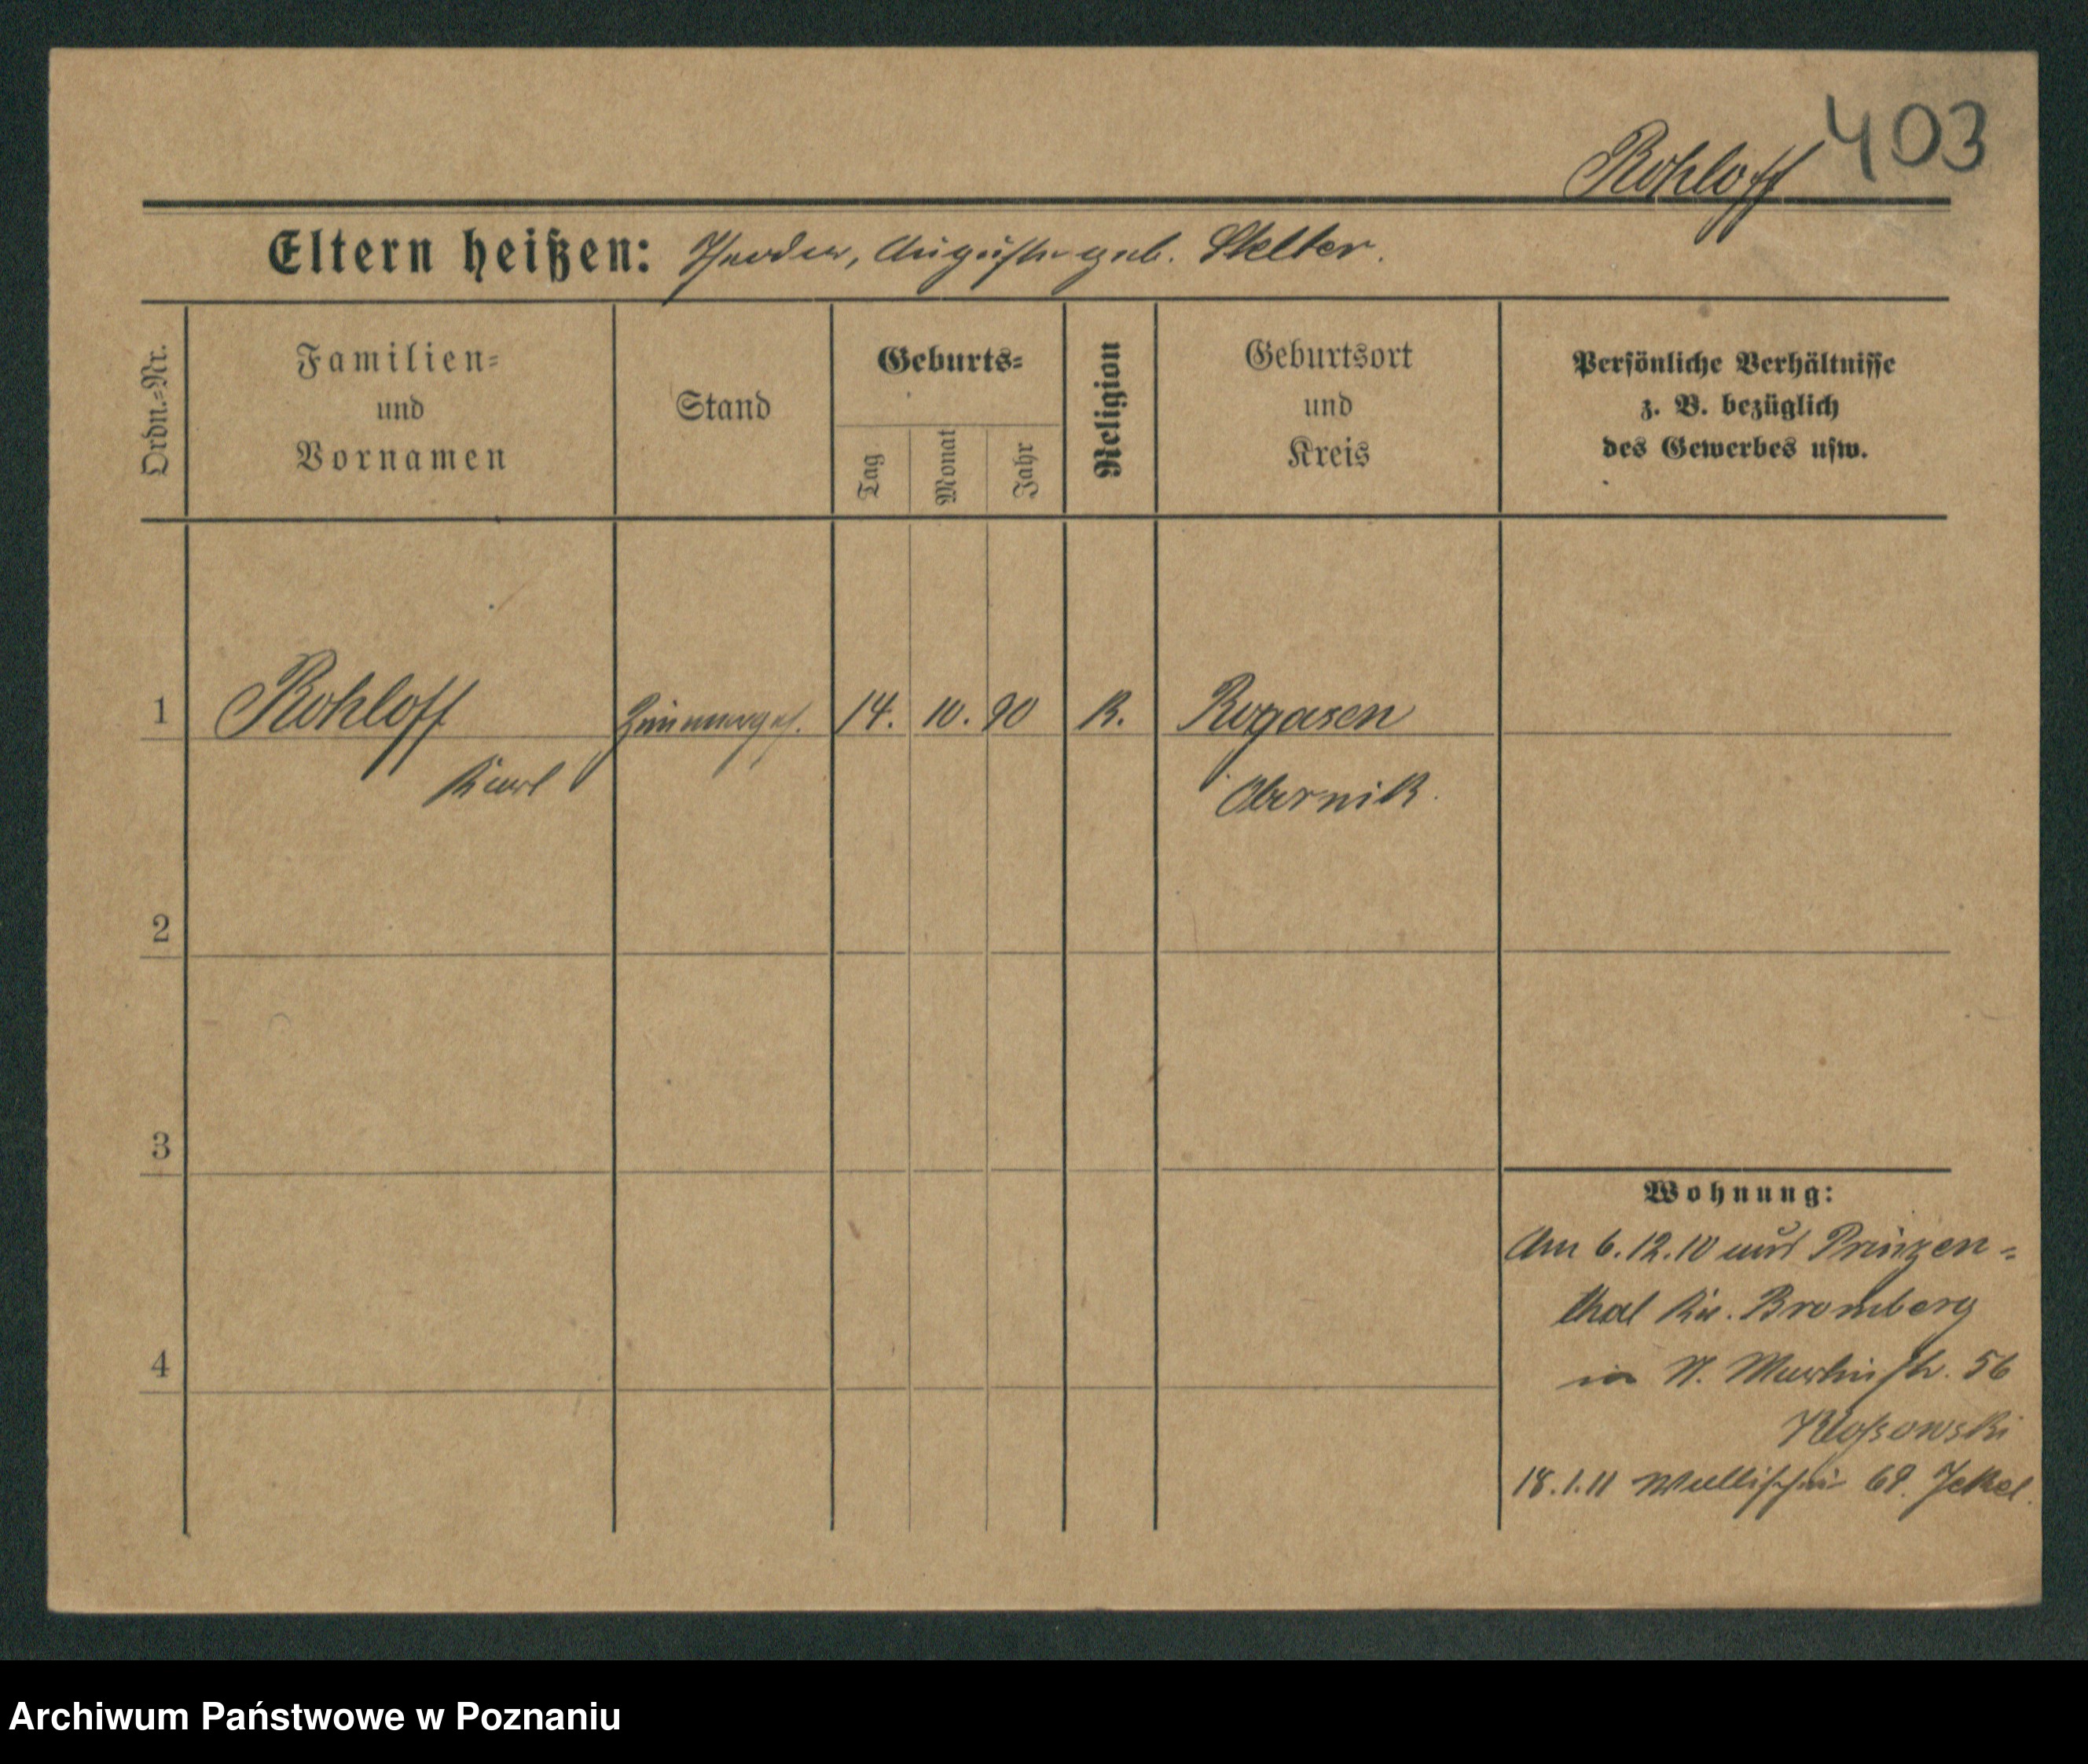 403
Rohloff
Eltern heißen: Theodor, Auguste geb. Stelter.
Ordn.=Nr.
Familien=
und
Vornamen
Stand
Geburts=
Tag
Monat
Jahr
Religion
Geburtsort
und
Kreis
Persönliche Verhältnisse
z. B. bezüglich
des Gewerbes usw.
1 Rohloff Zimmerges. 14. 10. 90 K. Rogasen
Karl Obernik.
2
3
4
Wohnung:
Am 6.12.10 aus Prinzen=
thal Kr. Bromberg
in St. Martinstr. 56
Kloßowski
18.1.11 Wallischei Jekel.
Archiwum Państwowe w Poznaniu